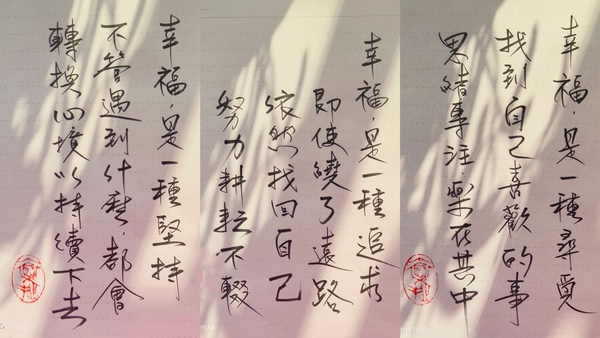 幸福,是一種尋覓
找到自己喜歡的事
思緒專注,樂在其中
幸福,是一種追求
即使繞了遠路
依然找回自己
努力耕耘不輟
幸福,是一種堅持
不管遇到什麼,都會
轉換心境以持續下去